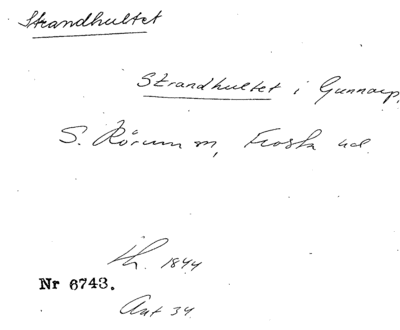 Strandhultet
Strandhultet i Gunnarp,
S. Rörum sn, Frosta hd
Lh. 1844
Nr 6743.
Ant 34